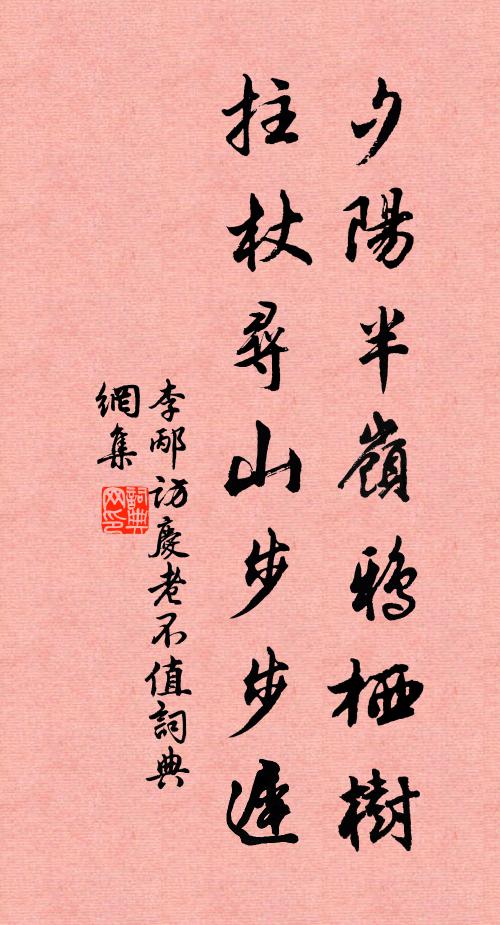 夕陽半嶺鴉栖樹
拄杖尋山步步遲
李邴訪慶老不值詞典
網集
詞典
网印